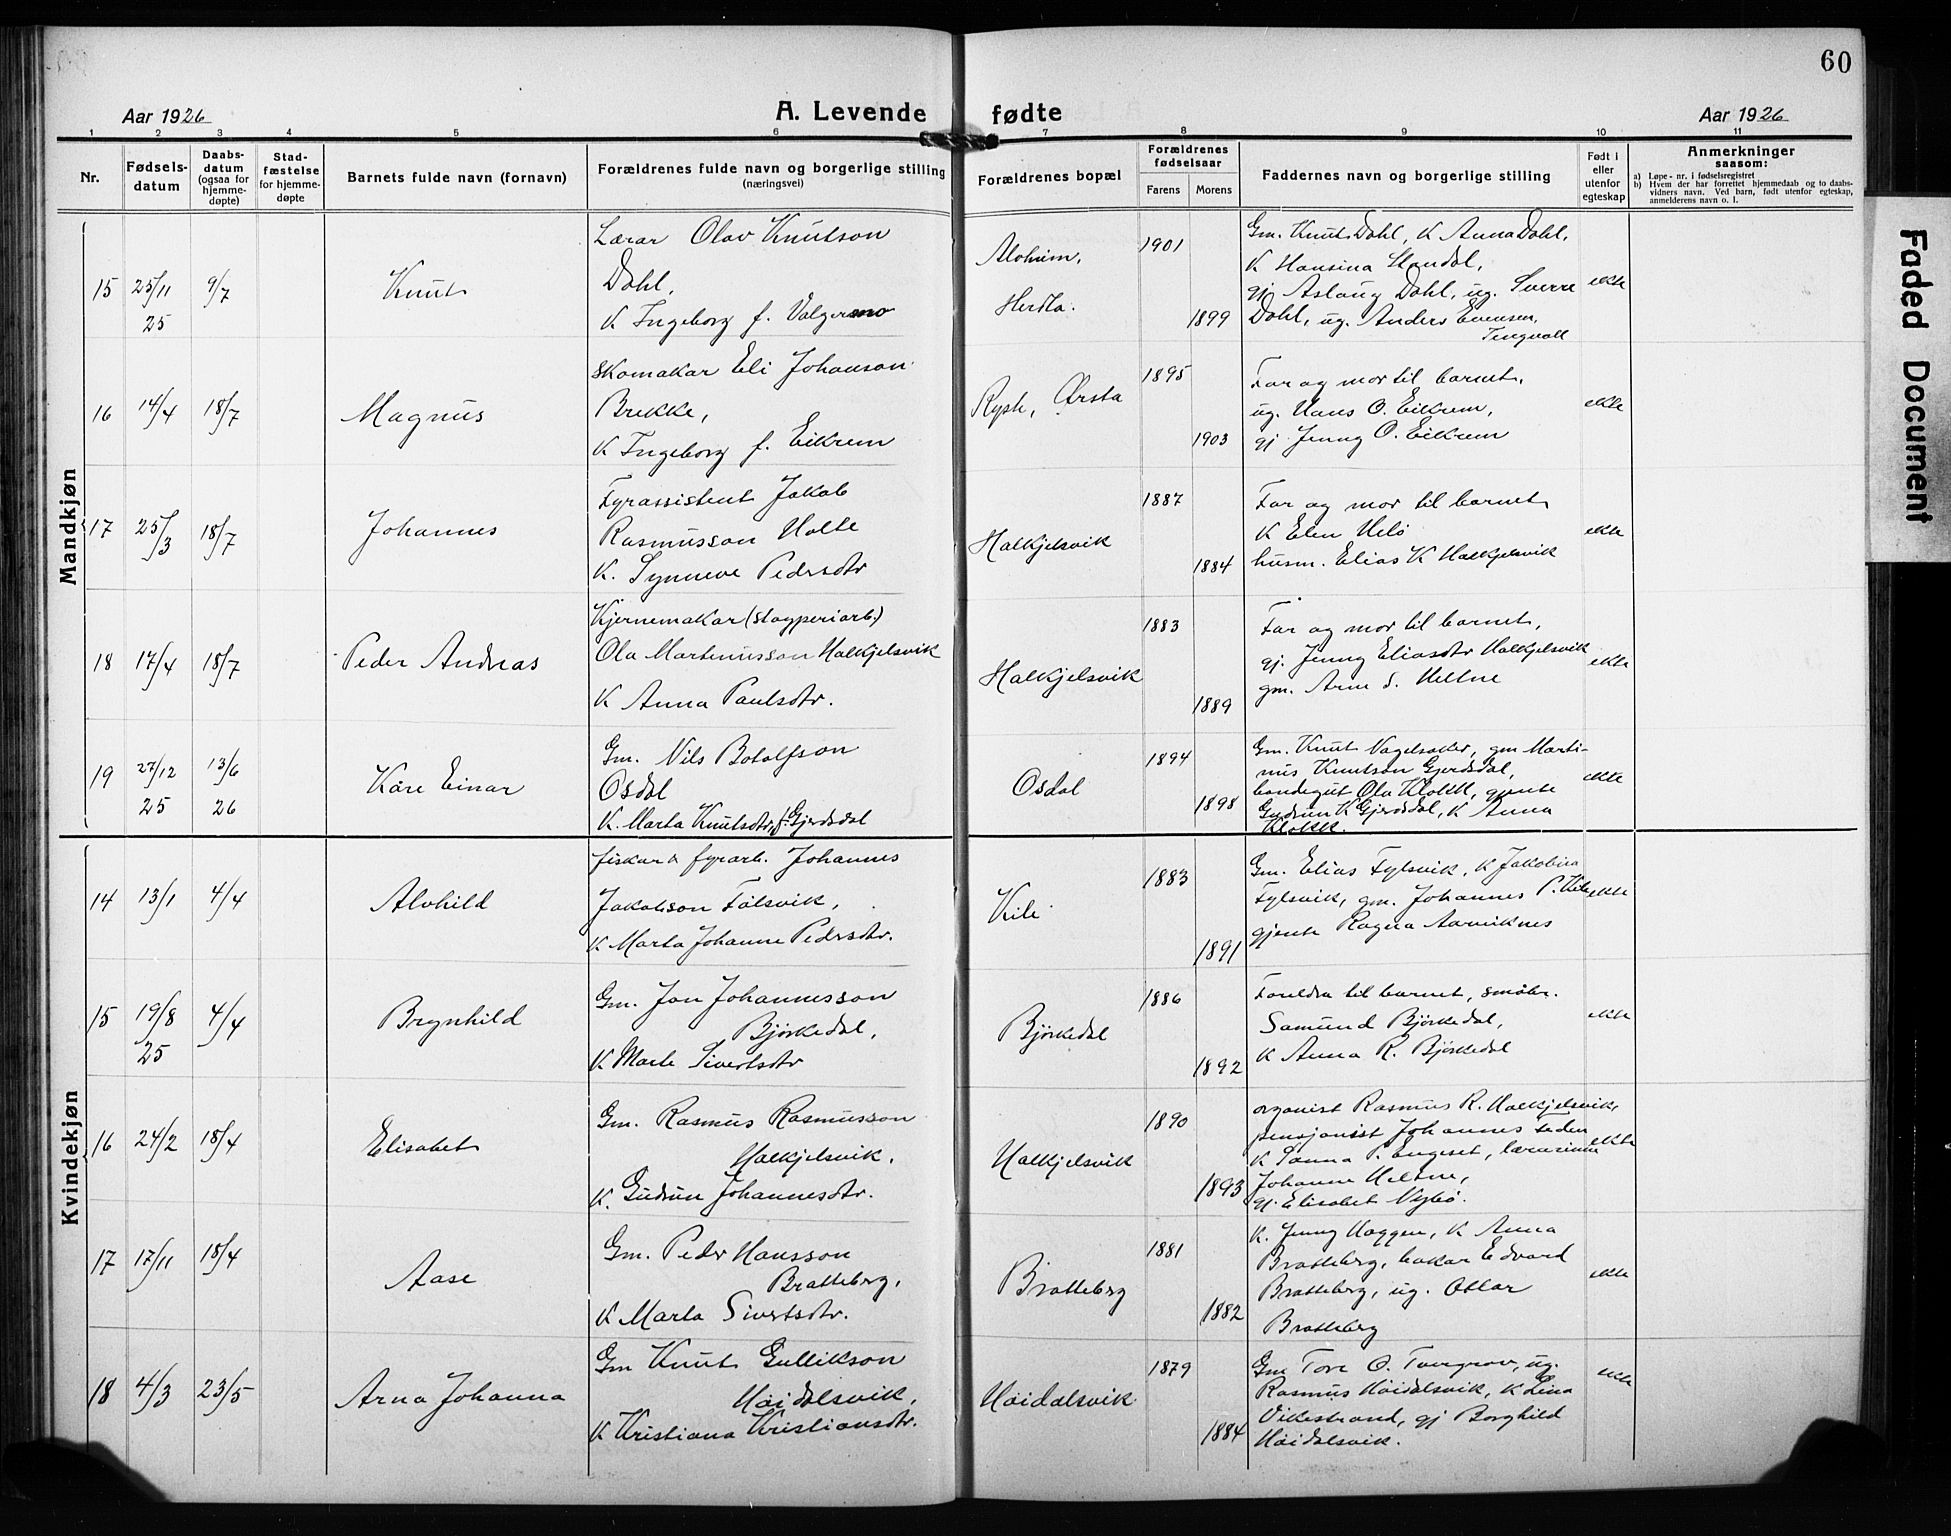 60
Aar 1926
A. Levende
fødte
Aar 1926
1 2 3 4 5 6 7 8 9 10 11
Nr.
Fødsels-
datum
Daabs-
datum
(ogsaa for
hjemme-
døpte)
Stad-
fæstelse
for hjemme-
døpte
Barnets fulde navn (fornavn)
Forældrenes fulde navn og borgerlige stilling
(næringsvei)
Forældrenes bopæl
Forældrenes
fødselsaar
Farens
Morens
Faddernes navn og borgerlige stilling
Født i
eller
utenfor
egteskap
Anmerkninger
saasom:
a) Løpe - nr. i fødselsregistret
b) Hvem der har forrettet hjemmedaab og to daabs-
vidners navn. Ved barn, født utenfor egteskap,
anmelderens navn o. l.
Faded Document
Mandkjøn
15
25/11
25
9/7
Knut
Lærar Olav Knutson
Dahl,
K Ingeborg f. Valgermo
Alvheim,
Herdla.
1901
1899
Gm. Knut Dahl, K Anna Dahl,
K Hansina Standal,
gj Aslaug Dahl, ug. Sverre
Dahl, ug. Anders Evensen,
Tingvoll
ekte
16
14/4
18/7
Magnus
Skomakar Eli Johanson
Brekke,
K Ingeborg f. Eikrem
Rysh, Ørsta
1895
1903
Far og mor til barnet,
ug. Hans O. Eikrem,
gj Jenny O. Eikrem
ekte
17
25/3
18/7
Johannes
Fyrassistent Jakob
Rasmusson Holte
K. Synneve Pedrsdtr
Halkjelsvik
1887
1884
Far og mor til barnet
K Elen Helö
husm. Elias K Halkjelsvik
ekte
18
17/4
18/7
Peder Andreas
Kjernemakar (støyperiarb.)
Ola Martinusson Halkjelsvik
K Anna Paulsdtr.
Halkjelsvik
1883
1889
Far og mor til barnet,
gj. Jenny Eliasdtr Halkjelsvik
gm. Arne S. Heltne
ekte
19
27/12
25
13/6
26
Kåre Einar
Gm. Nils Botolfson
Osdal
K. Marta Knutsdtr, f. Gjerdsdal
Osdal
1894
1898
Gm. Knut Vogelsaker, gm Marti-
nus Knutson Gjerdsdal,
bondegut Ola Klokk, gjente
Gudrun K Gjerdsdal, K Anna
Klokk.
ekte
Kvindekjøn
14
13/1
4/4
Alvhild
fiskar & fyrarb. Johannes
Jakobson Fölsvik,
K Marta Johanne Pedrsdtr.
Kile
1883
1891
Gm. Elias Fylsvik, K Jakobina
Fylsvik, gm. Johannes P. Kile
gjente Ragna Aarviknes
ekte
15
19/8
25
4/4
Brynhild
Gm. Jon Johannesson
Björkedal,
K Marte Sivertsdtr
Björkedal
1886
1892
Foreldra til barnet, småbr.
Samund Björkedal,
K Anna R. Björkedal
ekte
16
24/2
18/4
Elisabet
Gm. Rasmus Rasmusson
Halkjelsvik.
K. Gudrun Johannesdtr.
Halkjelsvik
1890
1893
organist Rasmus R. Halkjelsvik,
pensjonist Johannes
K Sanna P. Engeset, lærerinne
Johanne Heltne,
gj. Elisabet Nybö.
ekte
17
17/11
18/4
Aase
Gm. Peder Hansson
Bratteberg,
K Marta Sivertsdtr.
Bratteberg
1881
1882
K. Jenny Haggen, K Anna
Bratteberg, bakar Edvard
Bratteberg, ug. Ottar
Bratteberg
ekte
18
4/3
23/5
Arna Johanna
Gm Knut Gullikson
Höidalsvik,
K Kristiana Kristiansdtr.
Höidalsvik
1879
1884
Gm Tore O. ug.
Rasmus Höidalsvik, K Lina
Vikestrand, gj Borghild
Höidalsvik.
ekte